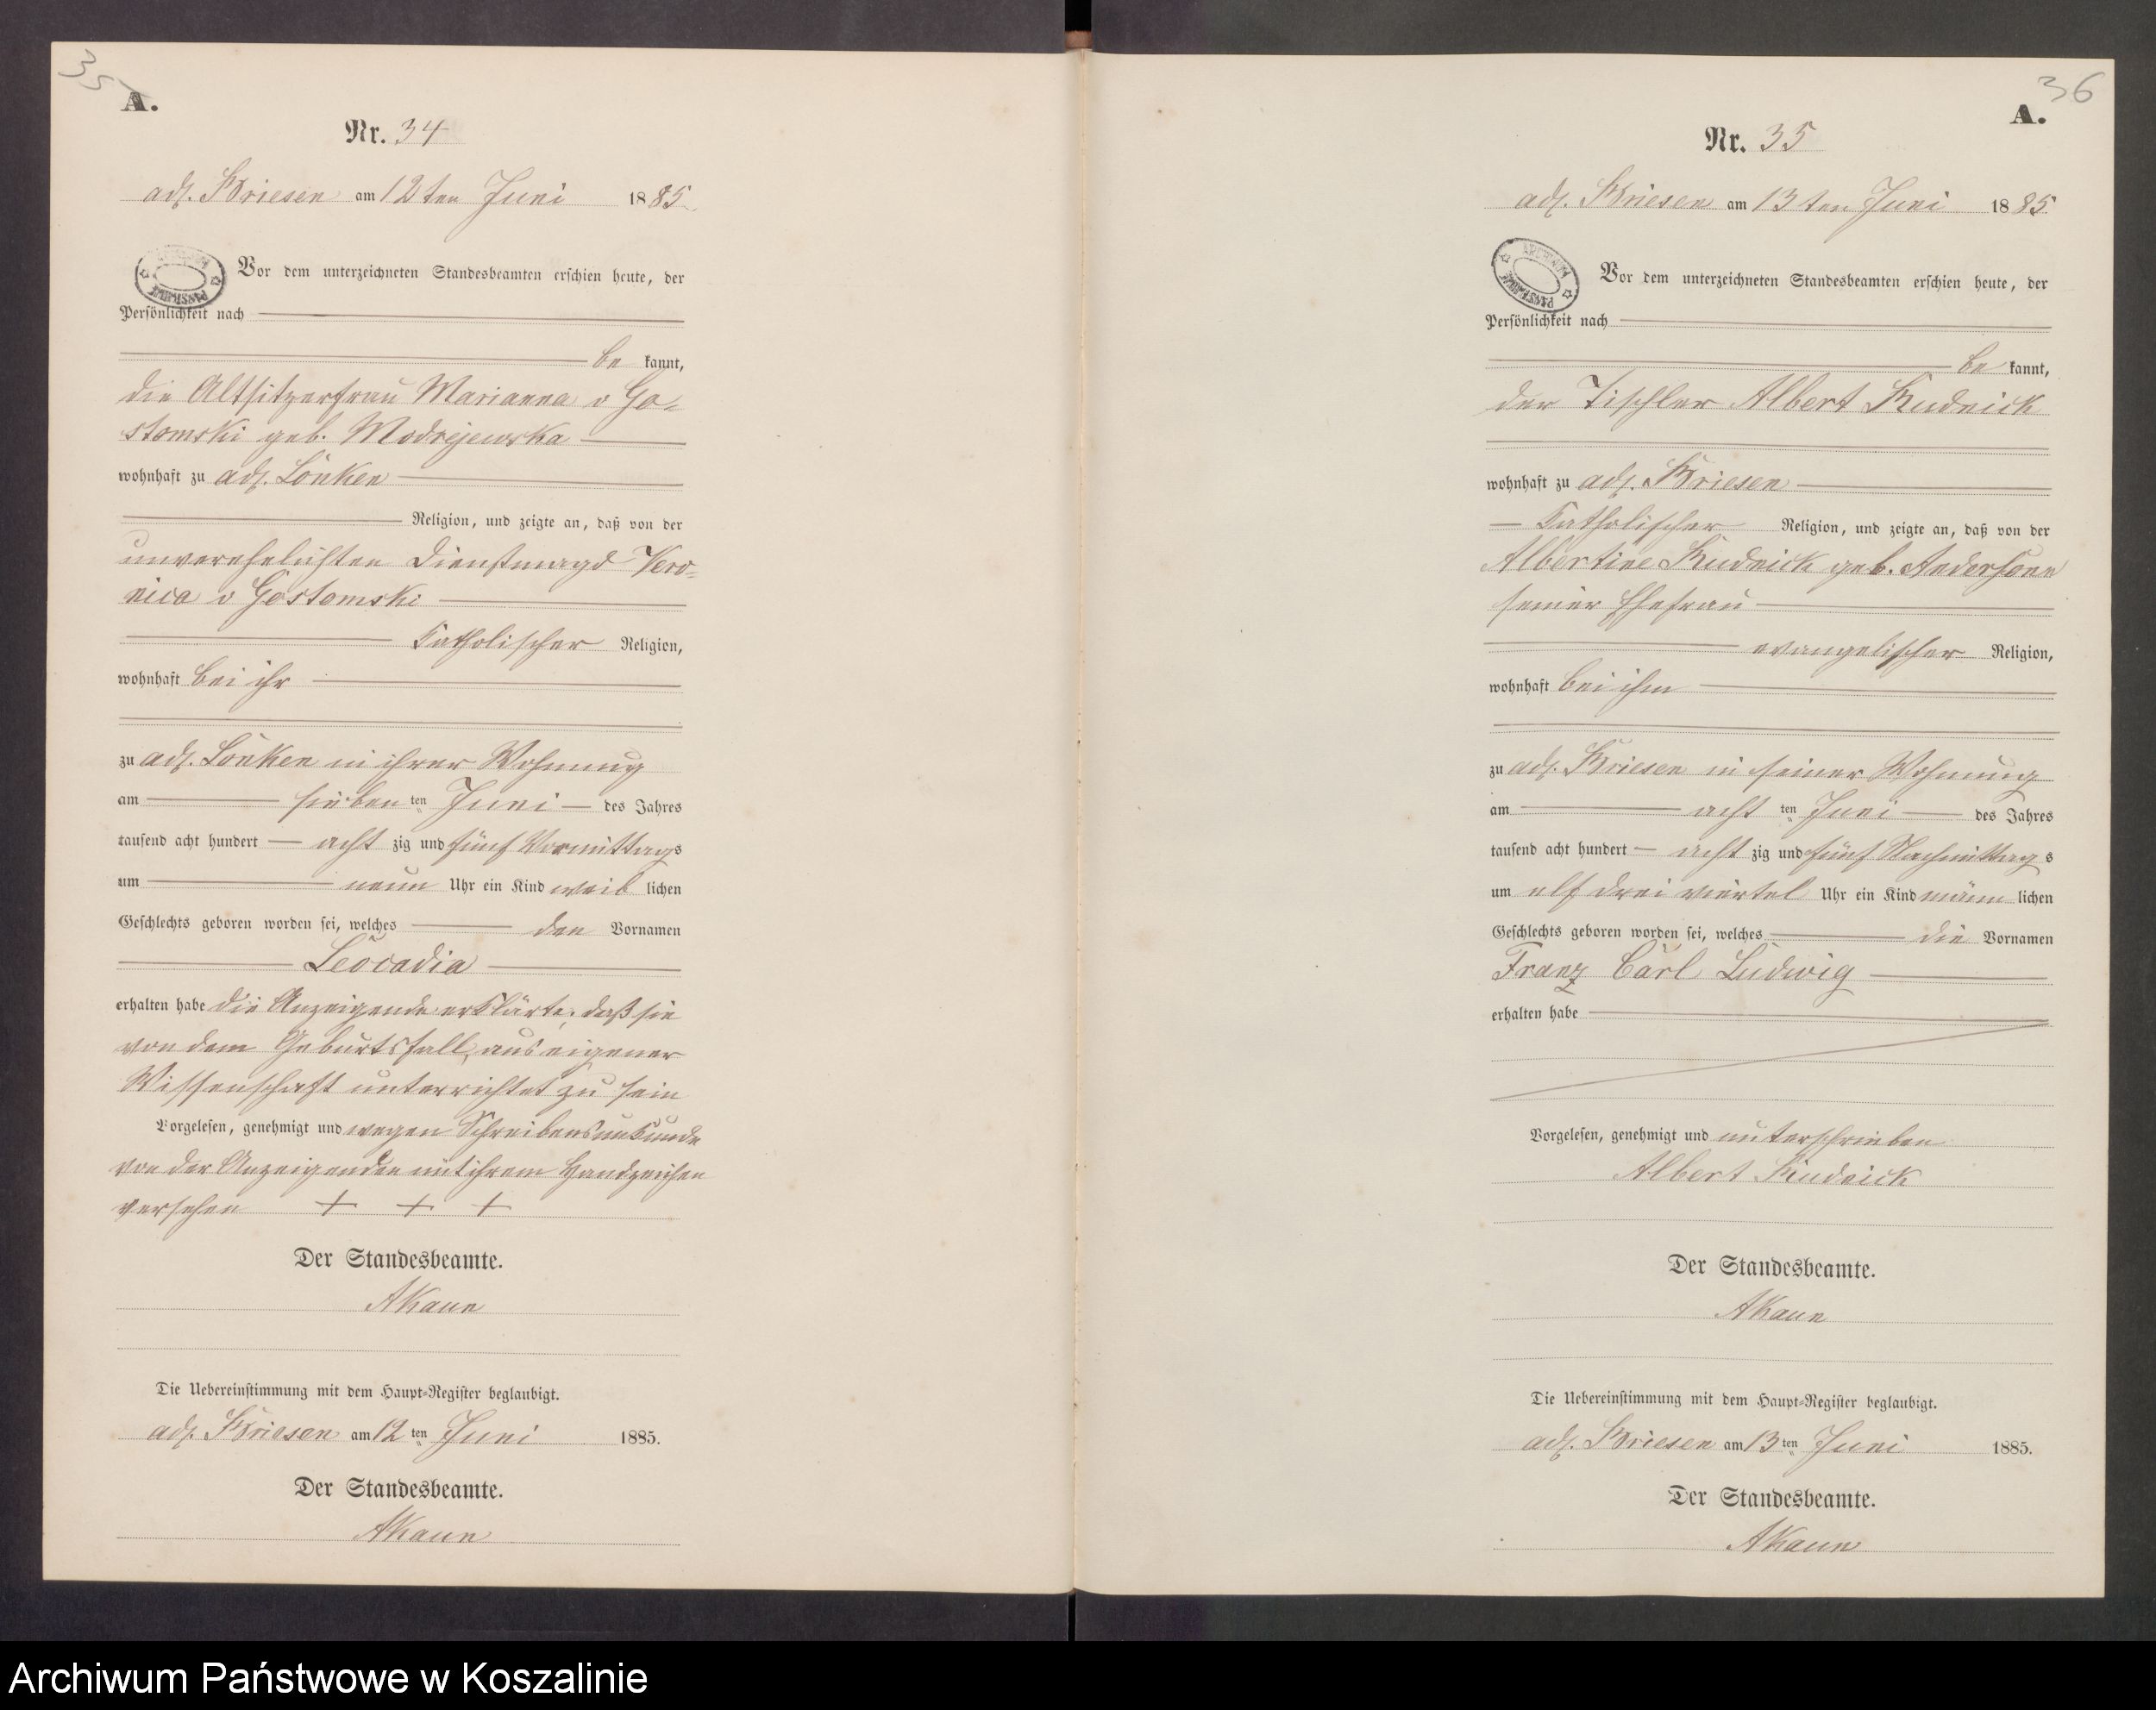 35
A.
Nr. 34
adl. Briesen am 12ten Juni 1885
Vor dem unterzeichneten Standesbeamten erschien heute, der
Persönlichkeit nach
be kannt,
die Altsitzerfrau Marianna v Go-
stomski geb. Modrejewska
wohnhaft zu adl. Lonken
Religion, und zeigte an, daß von der
unverehelichten Dienstmagd Vero-
nica v Gostomski
Katholischer Religion,
wohnhaft bei ihr
zu adl. Lonken in ihrer Wohnung
am sieben ten Juni des Jahres
tausend acht hundert acht zig und fünf Vormittags
um neun Uhr ein Kind weib lichen
Geschlechts geboren worden sei, welches den Vornamen
Leocadia
erhalten habe die Anzeigende erklärte, daß sie
von dem Geburtsfall aus eigener
Wissenschaft unterrichtet zu sein
Vorgelesen, genehmigt und wegen Schreibensunkunde
von der Anzeigenden mit ihrem Handzeichen
versehen + + +
Der Standesbeamte.
AKaun
Die Uebereinstimmung mit dem Haupt-Register beglaubigt.
adl. Briesen am 12 ten Juni 1885.
Der Standesbeamte.
AKaun
36
A.
Nr. 35
adl. Briesen am 13ten Juni 1885
ARCHIWUM PAŃSTWOWE
Vor dem unterzeichneten Standesbeamten erschien heute, der
Persönlichkeit nach
be kannt,
der Tischler Albert Rudnick
wohnhaft zu adl. Briesen
Katholischer Religion, und zeigte an, daß von der
Albertine Rudnick geb. Andersonn
seiner Ehefrau
evangelischer Religion,
wohnhaft bei ihm
zu adl. Briesen in seiner Wohnung
am acht ten Juni des Jahres
tausend acht hundert acht zig und fünf Nachmittag s
um elf drei viertel Uhr ein Kind männ lichen
Geschlechts geboren worden sei, welches die Vornamen
Franz Carl Ludwig
erhalten habe
Vorgelesen, genehmigt und unterschrieben
Albert Rudnick
Der Standesbeamte.
AKaun
Die Uebereinstimmung mit dem Haupt-Register beglaubigt.
adl. Briesen am 13 ten Juni 1885.
Der Standesbeamte.
AKaun
Archiwum Państwowe w Koszalinie